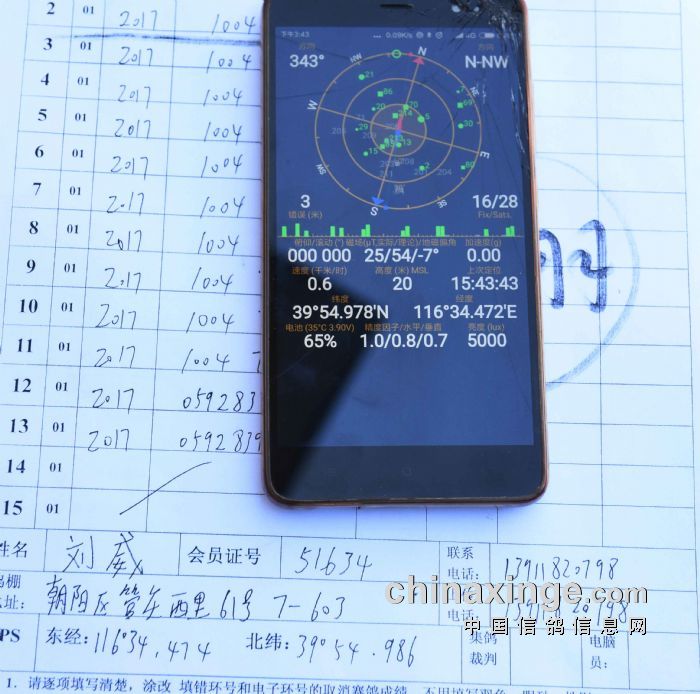 2 01 2017 1004
3 01 2017 1004
4 01 2017 1004
5 01 2017 1004
6 01 2017 1004
7 01 2017 1004
8 01 2017 1004
9 01 2017 1004
10 01 2017 1004
11 01 2017 1004
12 01 2017 059283
13 01 2017 0592839
14 01
15 01
下午3:43 ... 0.09K/s 4G
方向
343° N N-NW
W E S
3 16/28
错误 (米) Fix/Sats.
俯仰/滚动 (°) 磁场(μT,实际/理论)/地磁偏角 加速度(g)
000 000 25/54/-7° 0.00
速度 (千米/时) 高度 (米) MSL 上次定位
0.6 20 15:43:43
纬度 经度
39°54.978'N 116°34.472'E
电池 (35°C 3.90V) 精度因子/水平/垂直 亮度 (lux)
65% 1.0/0.8/0.7 5000
姓名 刘威 会员证号 51634 联系
电话: 13911820798
鸽棚
地址: 朝阳区管庄西里61号 7-603
电话:
chinaxinge.com
中国信鸽信息网
GPS 东经: 116°34.474 北纬: 39°54.986 集鸽
裁判
电脑
员:
1. 请逐项填写清楚，涂改 填错环号和电子环号的取消赛鸽成绩